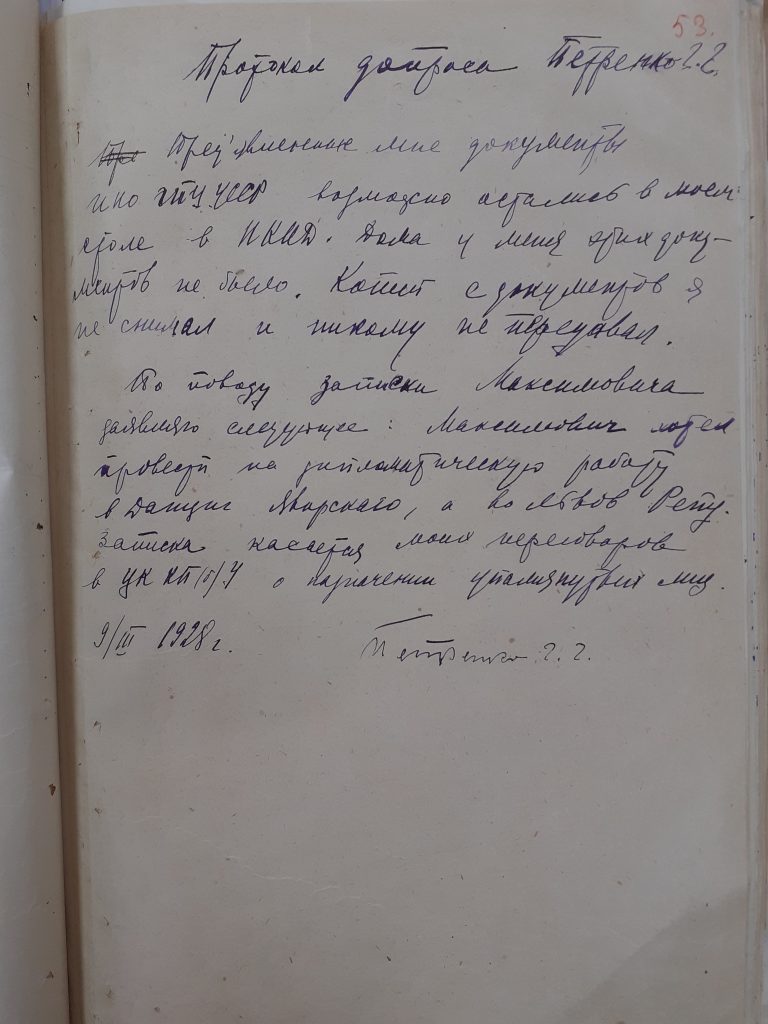 53.
Протокол допроса Петренко Г. Г.
Пре Пред'явленные мне документы
ИНО ГПУ УССР возможно остались в моем
столе в НКИД. Дома у меня этих доку-
ментов не было. Копий с документов я
не снимал и никому не передавал.
По поводу записки Максимовича
заявляю следующее: Максимович хотел
провести на дипломатическую работу
в Данциг Яворскаго, а во Львов Репу.
Записка касается моих переговоров
в ЦК КП(б)У о назначении упомянутых лиц.
9/III 1928 г.
Петренко Г. Г.